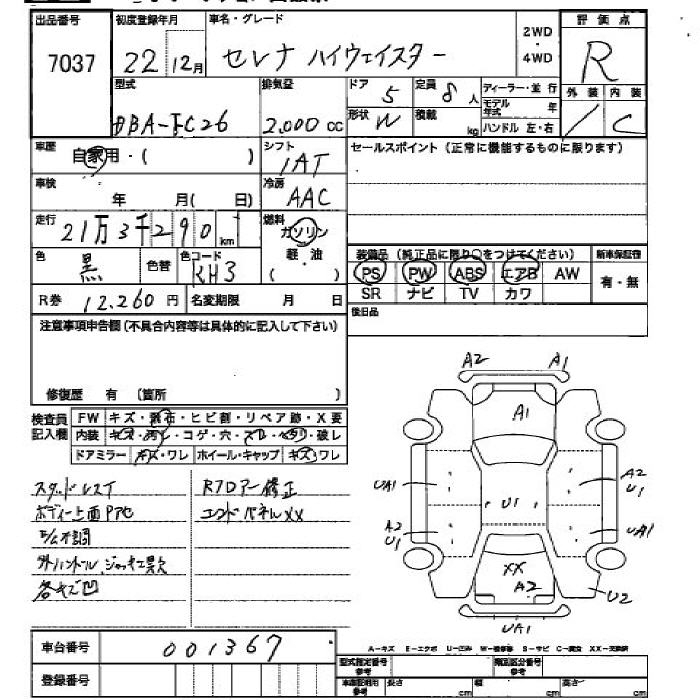 出品番号 初度登録年月 車名・グレード 2WD ・ 4WD 評価点
7037 22年12月 セレナ ハイウェイスター R
型式 排気量 ドア 定員 ディーラー・並行 外装 内装
DBA-FC26 2,000cc 5 8人 モデル年式 年 / C
形状 W 積載 kg ハンドル 左・右
車歴 自家用・( ) シフト 1AT セールスポイント(正常に機能するものに限ります)
車検 年 月( 日) 冷房 AAC
走行 21万3千290km 燃料 ガソリン
色 黒 色替 色コード KH3 軽・油 ( )
装備品(純正品に限り○をつけてください) 新車保証書
PS PW ABS エアB AW 有・無
SR ナビ TV カワ
R券 12,260円 名変期限 月 日 後日品
注意事項申告欄(不具合内容等は具体的に記入して下さい)
修復歴 有 〔箇所 〕
検査員記入欄 FW キズ・飛石・ヒビ割・リペア跡・X要
内装 キズ・汚レ・コゲ・穴・スレ・ヘタリ・破レ
ドアミラー キズ・ワレ ホイール・キャップ キズ・ワレ
スタッドレスT Rフロアー修正
ボディー上面 エンドパネルXX
外ハンドル ジャッキ欠
各キズ凹
A2 A1
A1
UA1 A2 U1
U1
A2 U1 UA1
XX A2 U2
UA1
車台番号 001367
A-キズ E-エクボ U-凹み W-補修跡 S-サビ C-腐食 XX-交換済
登録番号 型式指定番号 参考 類別区分番号 参考
車庫証明用 参考 長さ cm 幅 cm 高さ cm